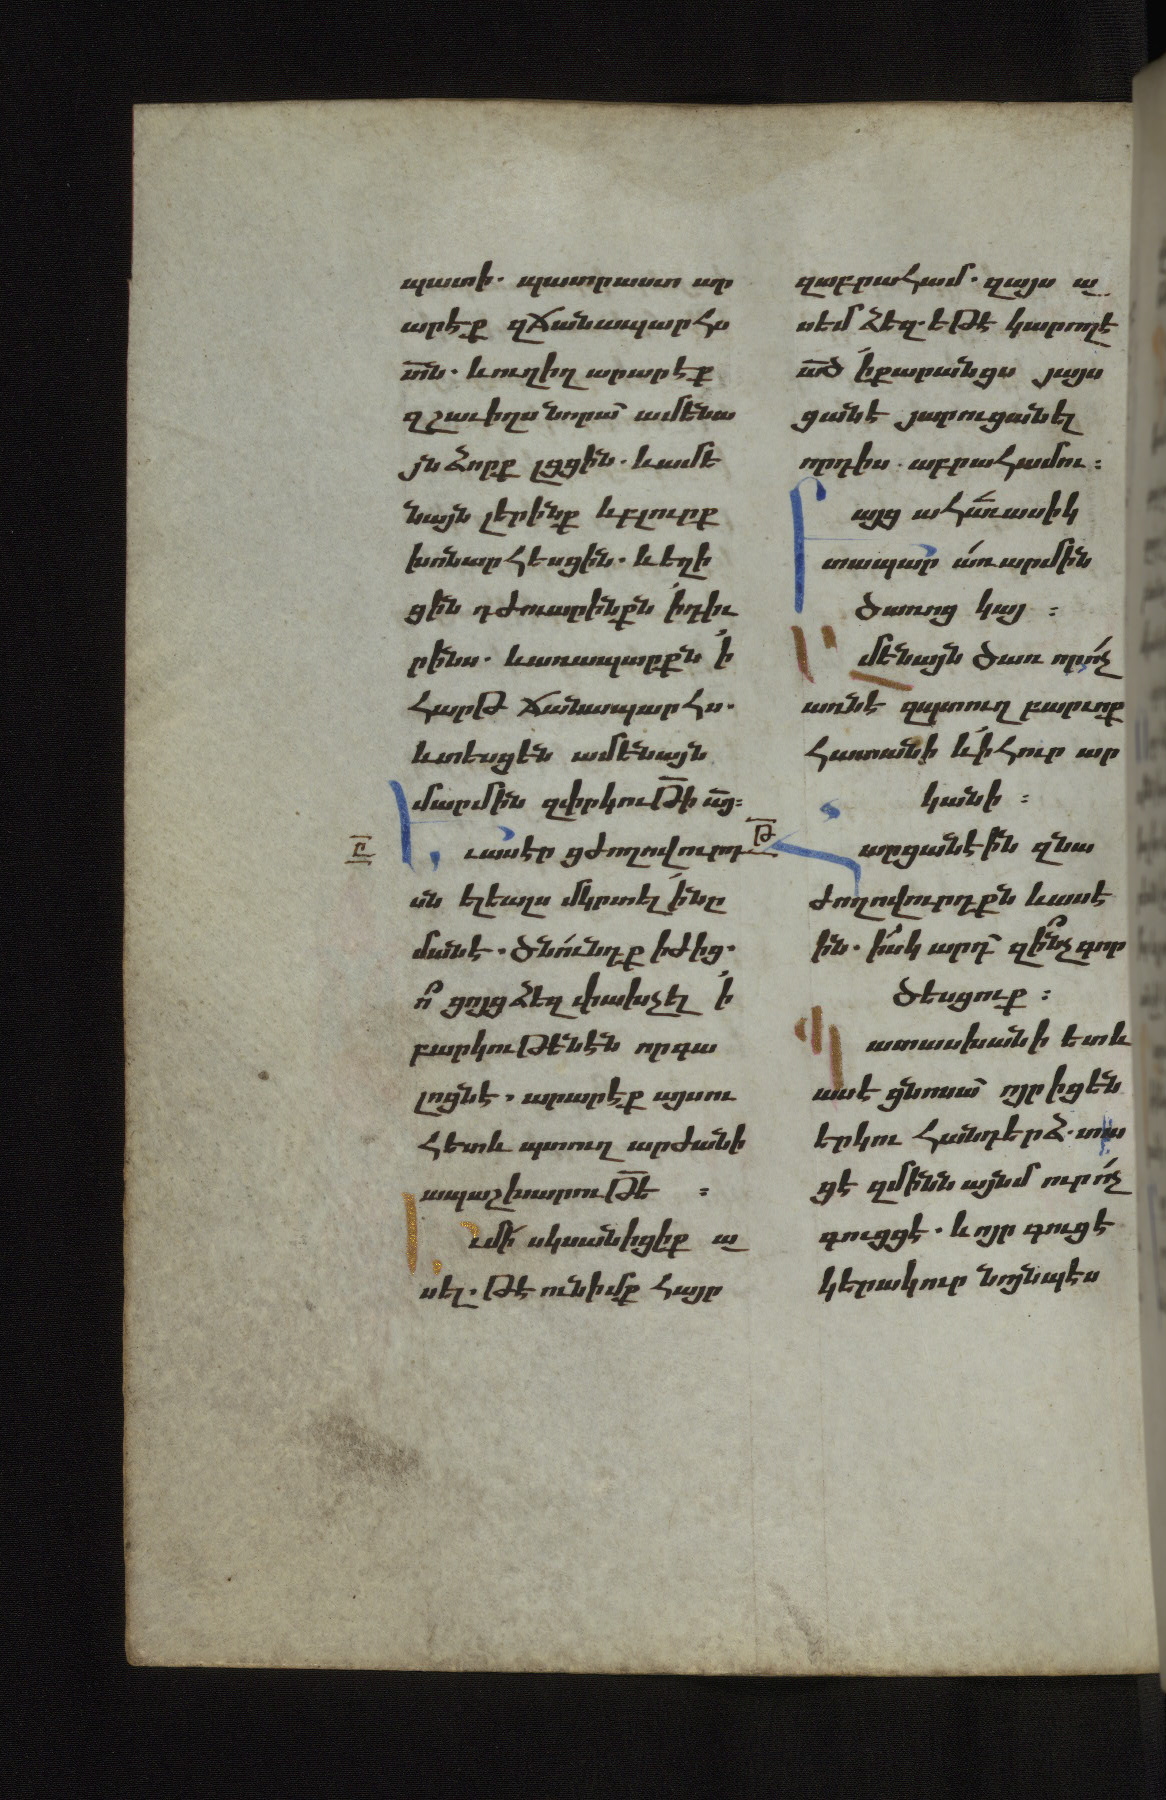 պատի. պատրաստ ար
արէք զճանապարհս
տն. և ուղիղ արարէք
զշաւիղս նորա՝ ամենա
յն ձորք լցցին. և ամե
նայն լերինք և բլուրք
խոնարհեսցին. և եղի
ցին դժուարինքն ի դիւ
րինս. և առապարքն ի
հարթ ճանապարհս.
և տեսցէն ամենայն
մարմին զփրկուԹի այ։
Ը
Եւ ասէր ցժողովուրդ
սն ելեալս մկրտել ինը
մանէ. ծնունդք իժից.
ո՞ ցոյց ձեզ փախչել ի
բարկուԹենէն որ գա
լոցնէ. արարէք այսու
հետև պտուղ արժանի
ապաշխարուԹե ։
Եւ մի սկսանիցիք ա
սել. Թէ ունիմք հայր
զաբրահամ. զայս ա
սեմ ձեզ. եԹէ կարող է
ած ի քարանցս յայս
ցանէ յարուցանել
որդիս աբրահամու ։
Բայց ահաւասիկ
տապար առ արմին
ծառոց կայ ։
Ամենայն ծառ որ ոչ
առնէ զպտուղ բարւոք
հատանի և ի հուր ար
կանի ։
Թ
Հարցանէին զնա
ժողովուրդքն և ասէ
ին. իսկ արդ՝ զի՞նչ գոր
ծեսցուք ։
Պատասխանի ետև
ասէ ցնոսա՝ ոյր իցեն
երկու հանդերձ. տա
ցէ զմինն այնմ ուր ոչ
գուցցէ. և ոյր գուցէ
կերակուր նոյնպէս